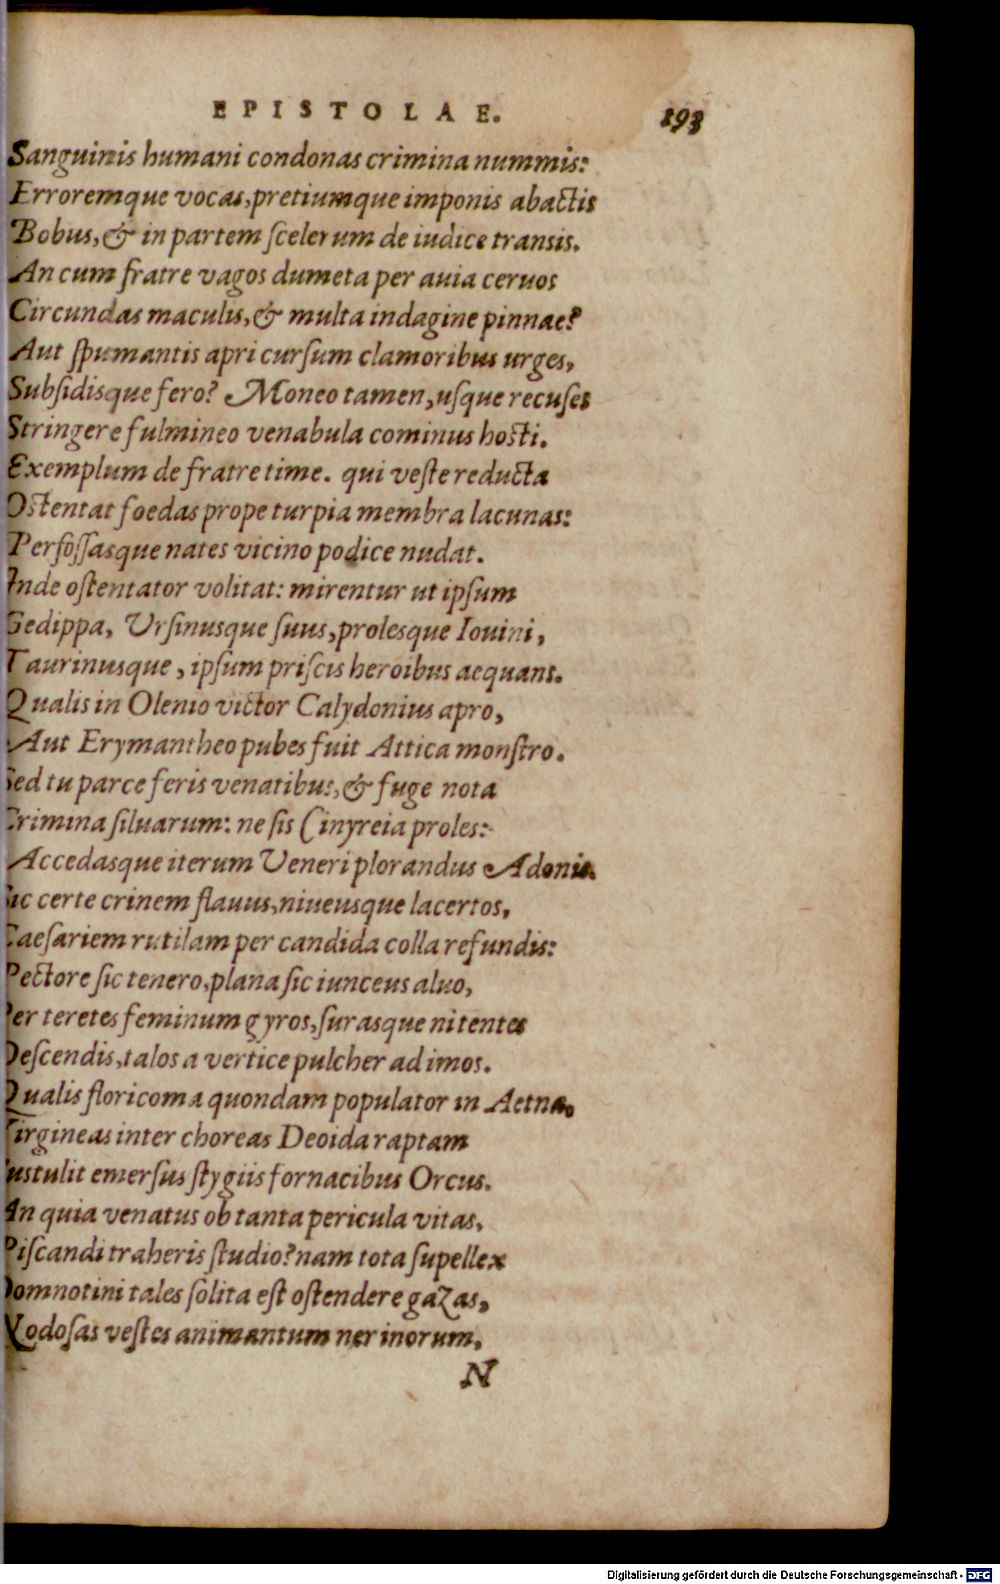 EPISTOLAE. 193
Sanguinis humani condonas crimina nummis:
Erroremque vocas, pretiumque imponis abactis
Bobus, & in partem scelerum de iudice transis.
An cum fratre vagos dumeta per auia ceruos
Circundas maculis, & multa indagine pinnae?
Aut spumantis apri cursum clamoribus urges,
Subsidisque fero? Moneo tamen, usque recuses
Stringere fulmineo venabula cominus hosti.
Exemplum de fratre time. qui veste reducta
Ostentat foedas prope turpia membra lacunas:
Perfossasque nates vicino podice nudat.
Inde ostentator volitat: mirentur ut ipsum
Gedippa, Ursinusque suus, prolesque Iouini,
Taurinusque, ipsum priscis heroibus aequans.
Qualis in Olenio victor Calydonius apro,
Aut Erymantheo pubes fuit Attica monstro.
Sed tu parce feris venatibus, & fuge nota
Crimina siluarum: ne sis Cinyreia proles:
Accedasque iterum Veneri plorandus Adonis.
Sic certe crinem flauus, niueusque lacertos,
Caesariem rutilam per candida colla refundis:
Pectore sic tenero, plana sic iunceus aluo,
Per teretes feminum gyros, surasque nitentes
Descendis, talos a vertice pulcher ad imos.
Qualis floricoma quondam populator in Aetna,
Virgineas inter choreas Deoida raptam
Sustulit emersus stygiis fornacibus Orcus.
An quia venatus ob tanta pericula vitas,
Piscandi traheris studio? nam tota supellex
Domnotini tales solita est ostendere gazas,
Nodosas vestes animantum nerinorum,
N
Digitalisierung gefördert durch die Deutsche Forschungsgemeinschaft - DFG